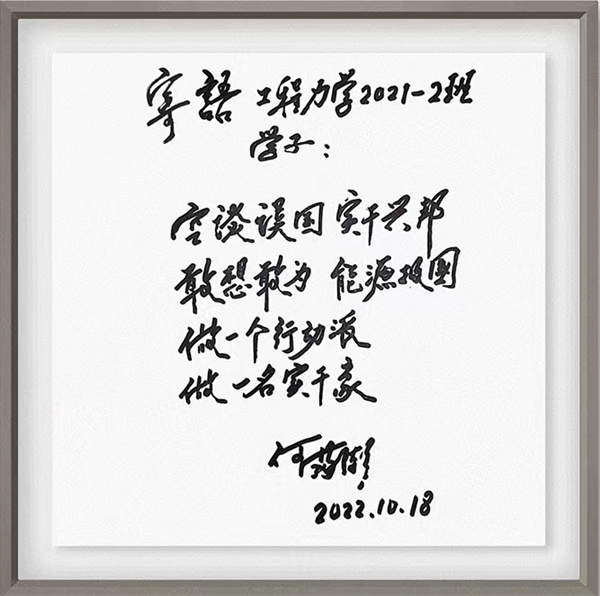 寄語 工程力学2021-2班
学子：
空谈误国 实干兴邦
敢想敢为 能源报國
做一个行动派
做一名实干家
2022.10.18